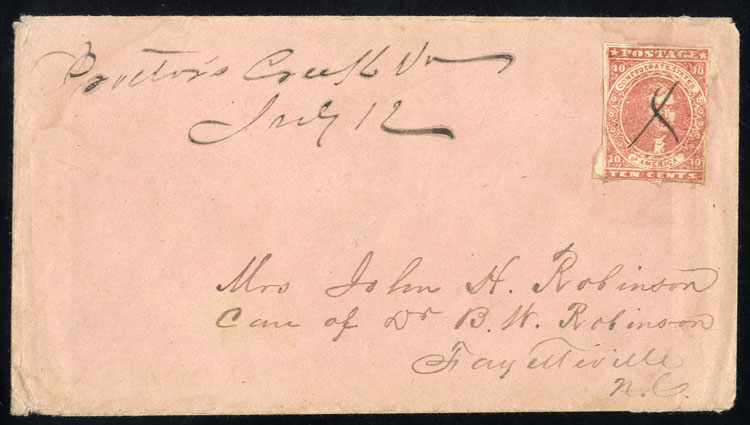 Proctor's Creek Va
July 12
POSTAGE
10 10
CONFEDERATE STATES
OF AMERICA
10 10
TEN CENTS
Mrs John H. Robinson
Care of Dr B. W. Robinson
Fayetteville
N.C.